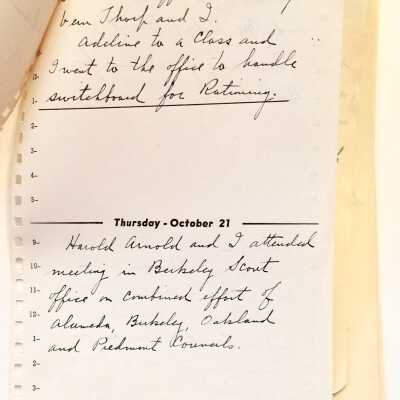 Vern Thorp and I.
Adeline to a Class and
I went to the office to handle
switchboard for Rationing.
1-
2-
3-
4-
5-
Thursday - October 21
9- Harold Arnold and I attended
10- meeting in Berkeley Scout
11- office on combined effort of
12- Alameda, Berkeley, Oakland
1- and Piedmont Councils.
2-
3-